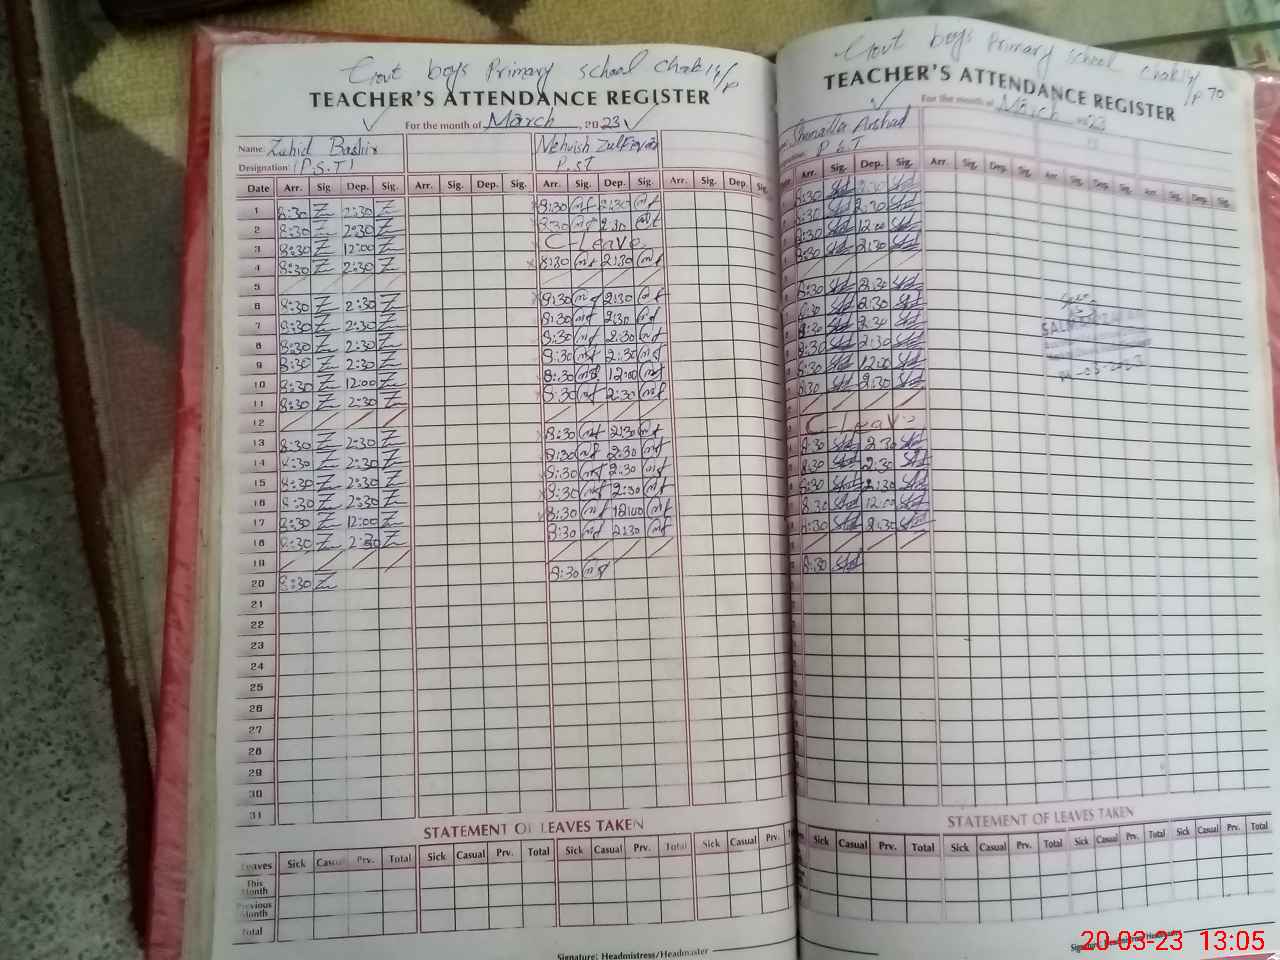 Govt boys Primary school chak 14/P
TEACHER'S ATTENDANCE REGISTER
For the month of March, 2023
Name: Zahid Bashir
Nehvish Zulfiqar
Designation: P.S.T
P.ST
Date Arr. Sig. Dep. Sig. Arr. Sig. Dep. Sig. Arr. Sig. Dep. Sig. Arr. Sig. Dep. Sig.
1 8:30 2:30 8:30 2:30
2 8:30 2:30 8:30 2:30
3 8:30 12:00 C-Leave
4 8:30 2:30 8:30 2:30
5
6 8:30 2:30 8:30 2:30
7 8:30 2:30 8:30 2:30
8 8:30 2:30 8:30 2:30
9 8:30 2:30 8:30 2:30
10 8:30 12:00 8:30 12:00
11 8:30 2:30 8:30 2:30
12
13 8:30 2:30 8:30 2:30
14 8:30 2:30 8:30 2:30
15 8:30 2:30 8:30 2:30
16 8:30 2:30 8:30 2:30
17 8:30 12:00 8:30
18 8:30 2:30 8:30 2:30
19
20 8:30 8:30
21
22
23
24
25
26
27
28
29
30
31
STATEMENT OF LEAVES TAKEN
Leaves Sick Casual Prv. Total Sick Casual Prv. Total Sick Casual Prv. Total Sick Casual Prv.
This Month
Previous Month
Total
Signature: Headmistress/Headmaster
Govt boys Primary school chak 14/P 70
TEACHER'S ATTENDANCE REGISTER
For the month of March 23
Arshad
P.S.T
Arr. Sig. Dep. Sig. Arr. Sig. Dep. Sig. Arr. Sig. Dep. Sig. Arr. Sig. Dep. Sig.
8:30 2:30
8:30 2:30
8:30 12:00
8:30 2:30
8:30 2:30
8:30 2:30
8:30 2:30
8:30 2:30
8:30 12:00
8:30 2:30
C-Leave
8:30 2:30
8:30 2:30
8:30 2:30
8:30 12:00
8:30 2:30
8:30
STATEMENT OF LEAVES TAKEN
Sick Casual Prv. Total Sick Casual Prv. Total Sick Casual Prv. Total Sick Casual Prv. Total
Signature: Headmistress/Headmaster
20-03-23 13:05